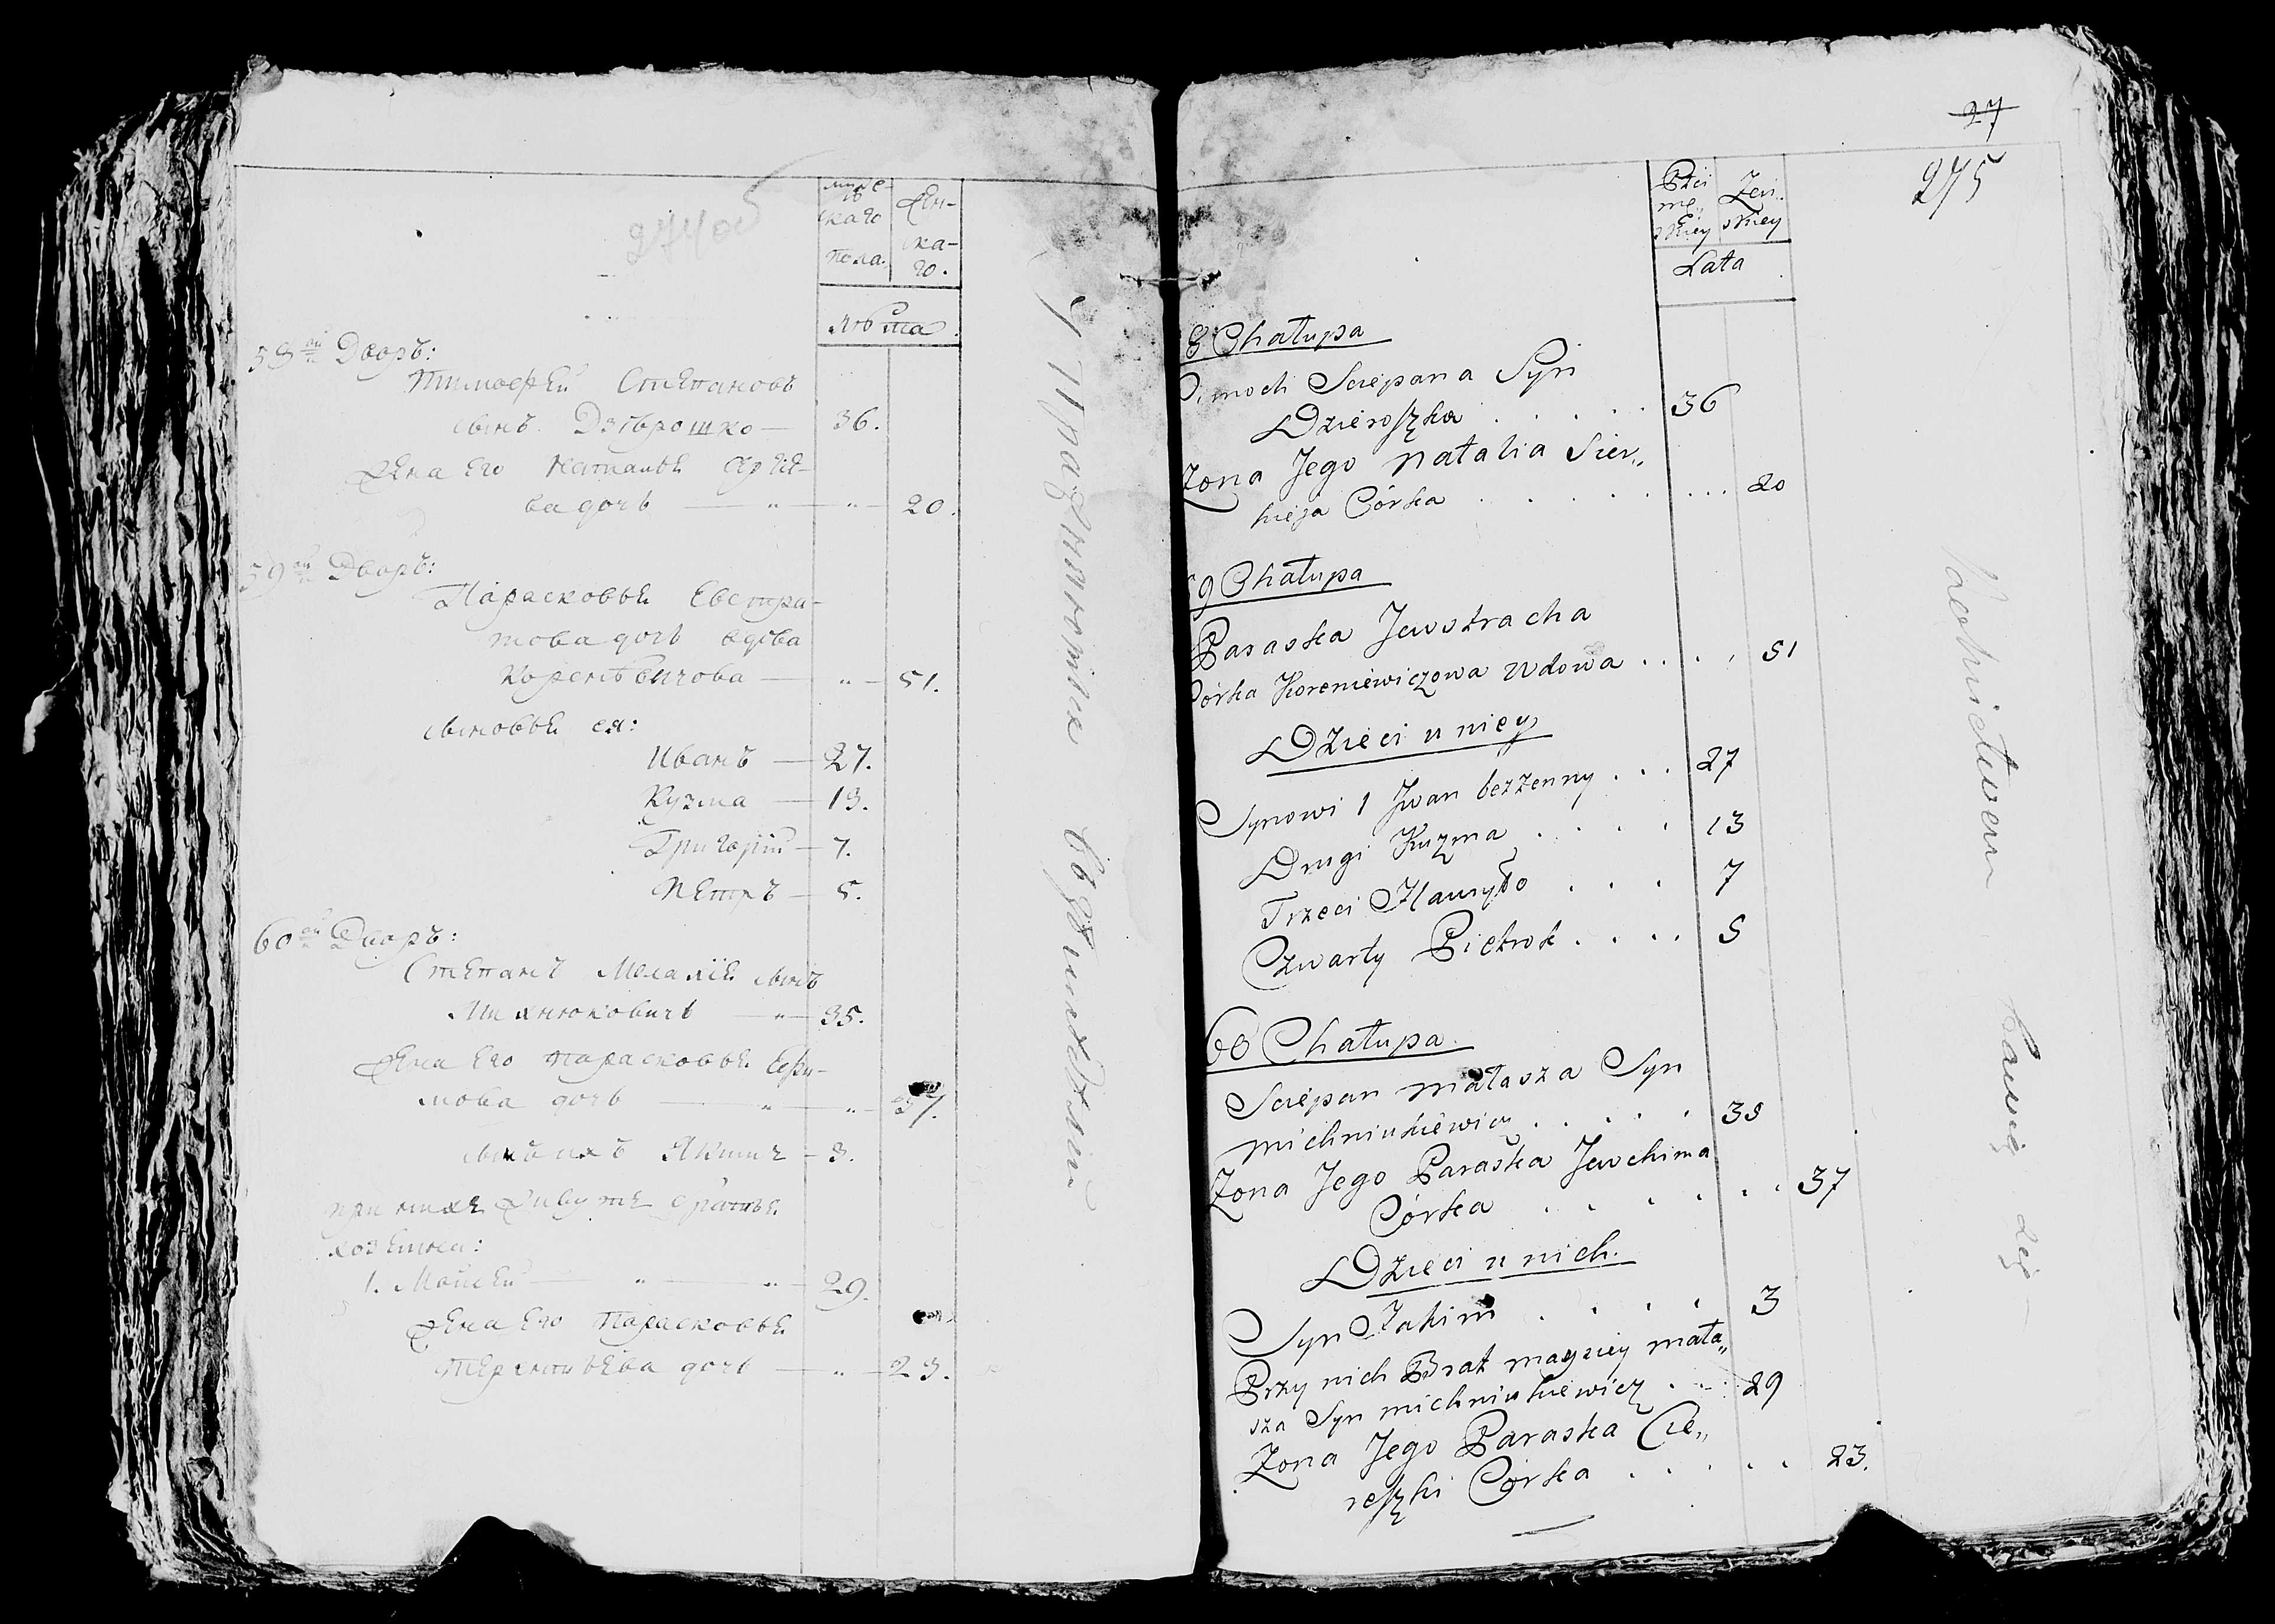 274 об
муже-
ска го
пола.
жен-
ска-
го.
лѣта.
58ой Дворъ:
Тимоѳей Степановъ
сынъ Дзѣрошко — 36.
жена его Наталья Сергѣе-
ва дочь — " — " — 20.
59ой Дворъ:
Парасковья Евстра-
това дочь вдова
Коренѣвичова — " — 51.
сыновья ея:
Иванъ — 27.
Кузма — 13.
Григорій — 7.
Петръ — 5.
60ой Дворъ:
Степанъ Малахіи сынъ
Михнюковичъ — " — 35.
жена его Парасковья Ефи-
мова дочь — " — " — 37.
сынъ ихъ Якимъ — 3.
при нихъ живутъ братья
хозяина:
1. Мойсей — " — " — 29.
жена его Парасковья
Терентьева дочь — " — 23.
27
275
Męskiey
Żeńskiey
Lata
8 Chałupa
Cimoch Sciepana Syn
Dzieroszka . . . . . 36
Żona Jego Natalia Sier„
hieja Córka . . . . . . . . 20
59 Chałupa
Paraska Jewstracha
Córka Koreniewiczowa Wdowa . . . . 51
Dzieci u niey
Synowi 1 Jwan bezżenny . . . 27
Drugi Kuzma . . . . 13
Trzeci Hauryło . . . 7
Czwarty Pietruk . . . . 5
60 Chałupa
Sciepan Małasza Syn
Michniukiewicz . . . . 35
Żona Jego Paraska Jewchima
Córka . . . . . . . 37
Dzieci u nich.
Syn Jakim . . . . 3
Przy nich Brat Mayziey Mała„
sza Syn Michniukiewicz . . . 29
Żona Jego Paraska Cie„
reszki Córka . . . . . 23.